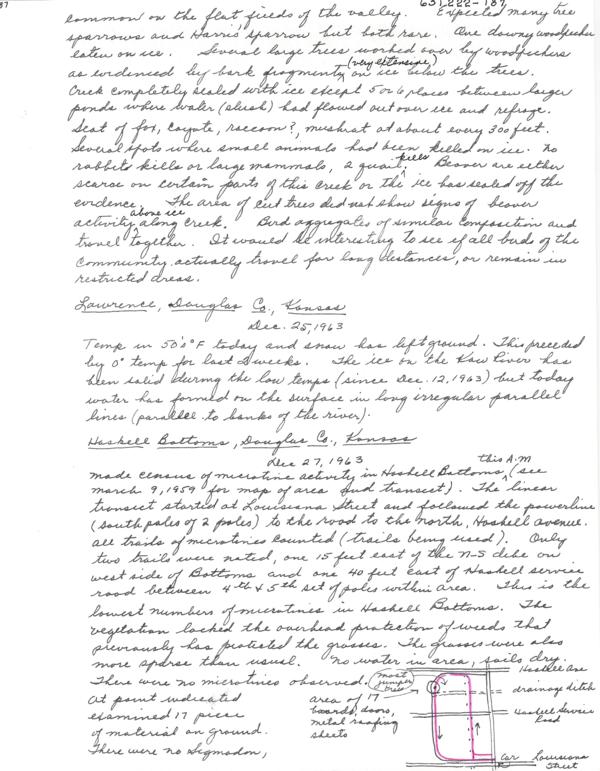 87
631222-187
common on the flat fields of the valley. Expected many tree
sparrows and Harris' sparrow but both rare. One downy woodpecker
eaten on ice. Several large trees worked over by woodpeckers
as evidenced by bark fragments (very extensive) on ice below the trees.
Creek completely sealed with ice except 5 or 6 places between larger
ponds where water (slush) had flowed out over ice and refroze.
Scat of fox, coyote, raccoon?, muskrat at about every 300 feet.
Several spots where small animals had been killed on ice. No
rabbits kills or large mammals, 2 quail kills. Beaver are either
scarce on certain parts of this creek or the ice has sealed off the
evidence. The area of cut trees did not show signs of beaver
activity above ice along creek. Bird aggregates of similar composition and
travel together. It would be interesting to see if all birds of the
community actually travel for long distances, or remain in
restricted areas.
Lawrence, Douglas Co., Kansas
Dec. 25, 1963
Temp in 50's °F today and snow has left ground. This preceded
by 0° temp for last 2 weeks. The ice on the Kaw River has
been solid during the low temps (since Dec. 12, 1963) but today
water has formed on the surface in long irregular parallel
lines (parallel to banks of the river).
Haskell Bottoms, Douglas Co., Kansas
Dec 27, 1963
made census of microtine activity in Haskell Bottoms, this A.M (see
march 9, 1959 for map of area and transect). The linear
transect started at Louisiana Street and followed the powerline
(south poles of 2 poles) to the road to the north, Haskell avenue.
all trails of microtines counted (trails being used). Only
two trails were noted, one 15 feet east of the N-S dike on
west side of Bottoms and one 40 feet east of Haskell service
road between 4th & 5th set of poles within area. This is the
lowest numbers of microtines in Haskell Bottoms. The
vegetation lacked the overhead protection of weeds that
previously has protected the grasses. The grasses were also
more sparse than usual. No water in area, soils dry.
There were no microtines observed.
At point indicated
examined 17 piece
of material on ground.
There were no Sigmodon,
most juniper trees
area of 17
boards, doors,
metal roofing
sheets
Haskell Ave
drainage ditch
Haskell Service
Road
car
Louisiana
Street